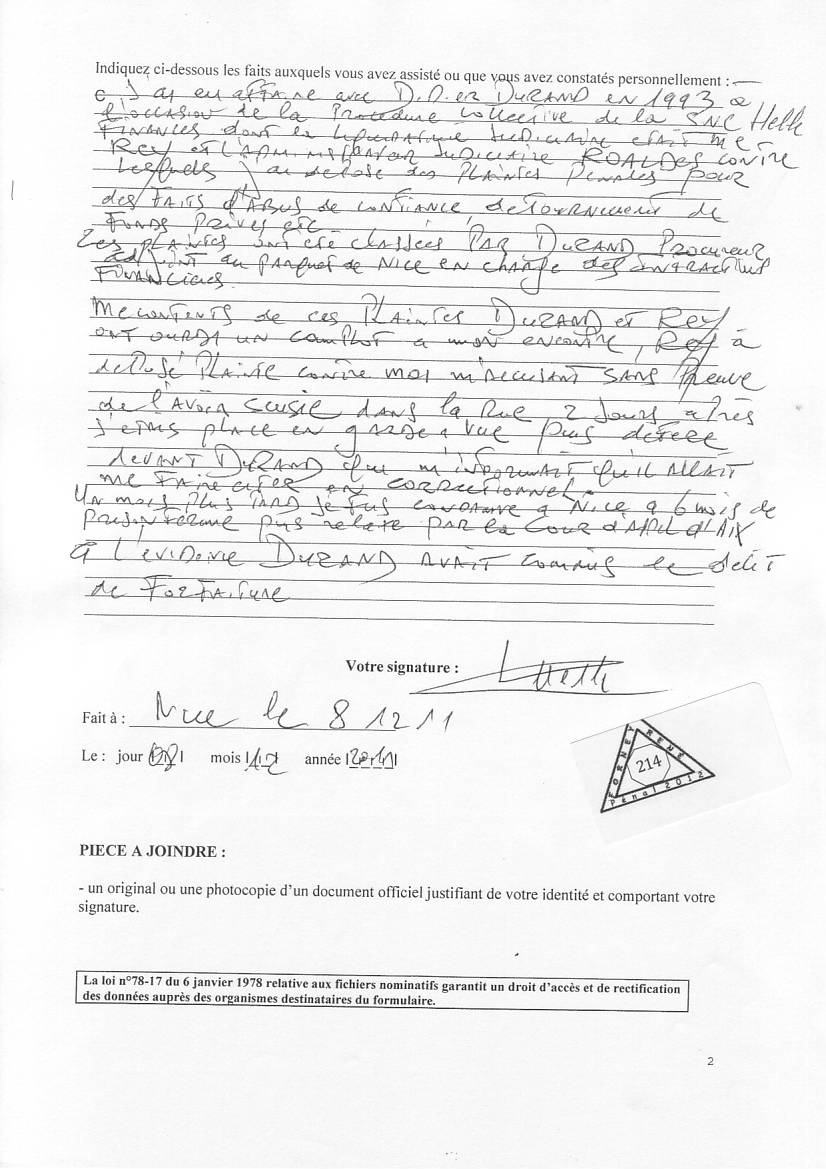 Indiquez ci-dessous les faits auxquels vous avez assisté ou que vous avez constatés personnellement :
J'ai eu affaire avec DURAND en 1993 a
l'occasion de la Procedure collective de la SNC Helle
FINANCES dont le JUDICIAIRE etait Me
Rey et l'ADMINISTRATEUR JUDICIAIRE contre
lesquels J'ai deposé des PLAINTES Penales pour
des FAITS d'ABUS de CONFIANCE, deTOURNEMENT de
FONDS PRIVES etc
Les PLAINTES ont été classées PAR DURAND Procureur
adjoint au parquet de NICE en charge des INFRACTIONS
FINANCIERES.
Mecontents de ces PLAINTES DURAND et Rey
ONT OURDI UN COMPLOT a mon encontre, Rey à
déposé PLAINTE contre moi m'accusant SANS Preuve
de l'AVOIR dans la Rue, 2 Jours après
J'etais place en GARDE a VUE puis déféré
devant DURAND qui m'informait qu'il ALLAIT
me FAIRE citer en CORRECTIONNEL.
UN mois PLUS TARD Je fus condamné a Nice a 6 mois de
PRISON FERME puis relaxé PAR la Cour d'APPEL d'AIX
à l'évidence DURAND AVAIT commis le delit
de FORFAITURE
Votre signature :
Helle
Fait à : Nice le 8 12 11
Le : jour |08| mois |12| année |2011|
FORNEY RENÉ
214
Pénal 2012
PIECE A JOINDRE :
- un original ou une photocopie d'un document officiel justifiant de votre identité et comportant votre
signature.
La loi n°78-17 du 6 janvier 1978 relative aux fichiers nominatifs garantit un droit d'accès et de rectification
des données auprès des organismes destinataires du formulaire.
2